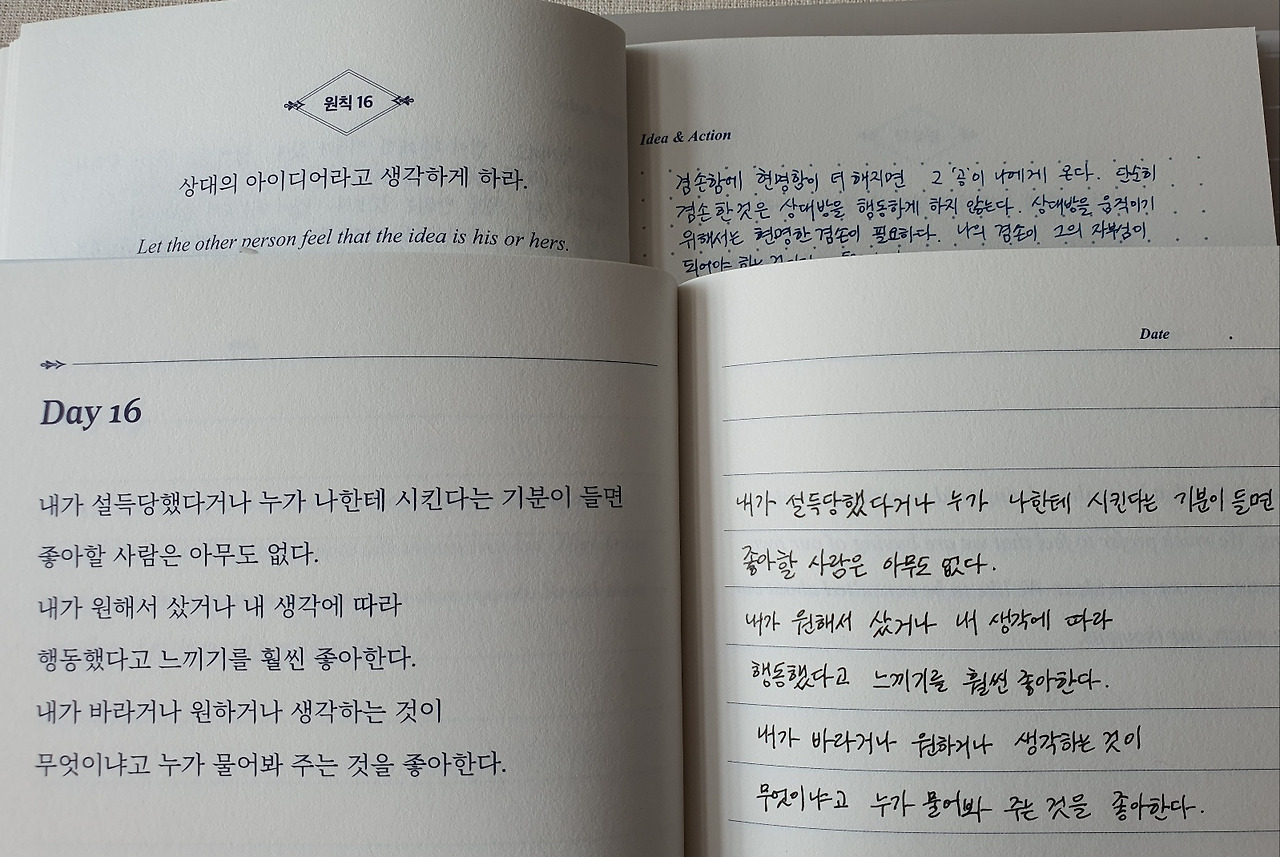 원칙 16
상대의 아이디어라고 생각하게 하라.
Let the other person feel that the idea is his or hers.
Idea & Action
겸손함에 현명함이 더해지면 그 '공'이 나에게 온다. 단순히
겸손한 것은 상대방을 행동하게 하지 않는다. 상대방을 움직이기
위해서는 현명한 겸손이 필요하다. 나의 겸손이 그의 자부심이
되어야 하는
Day 16
내가 설득당했다거나 누가 나한테 시킨다는 기분이 들면
좋아할 사람은 아무도 없다.
내가 원해서 샀거나 내 생각에 따라
행동했다고 느끼기를 훨씬 좋아한다.
내가 바라거나 원하거나 생각하는 것이
무엇이냐고 누가 물어봐 주는 것을 좋아한다.
Date .
내가 설득당했다거나 누가 나한테 시킨다는 기분이 들면
좋아할 사람은 아무도 없다.
내가 원해서 샀거나 내 생각에 따라
행동했다고 느끼기를 훨씬 좋아한다.
내가 바라거나 원하거나 생각하는 것이
무엇이냐고 누가 물어봐 주는 것을 좋아한다.